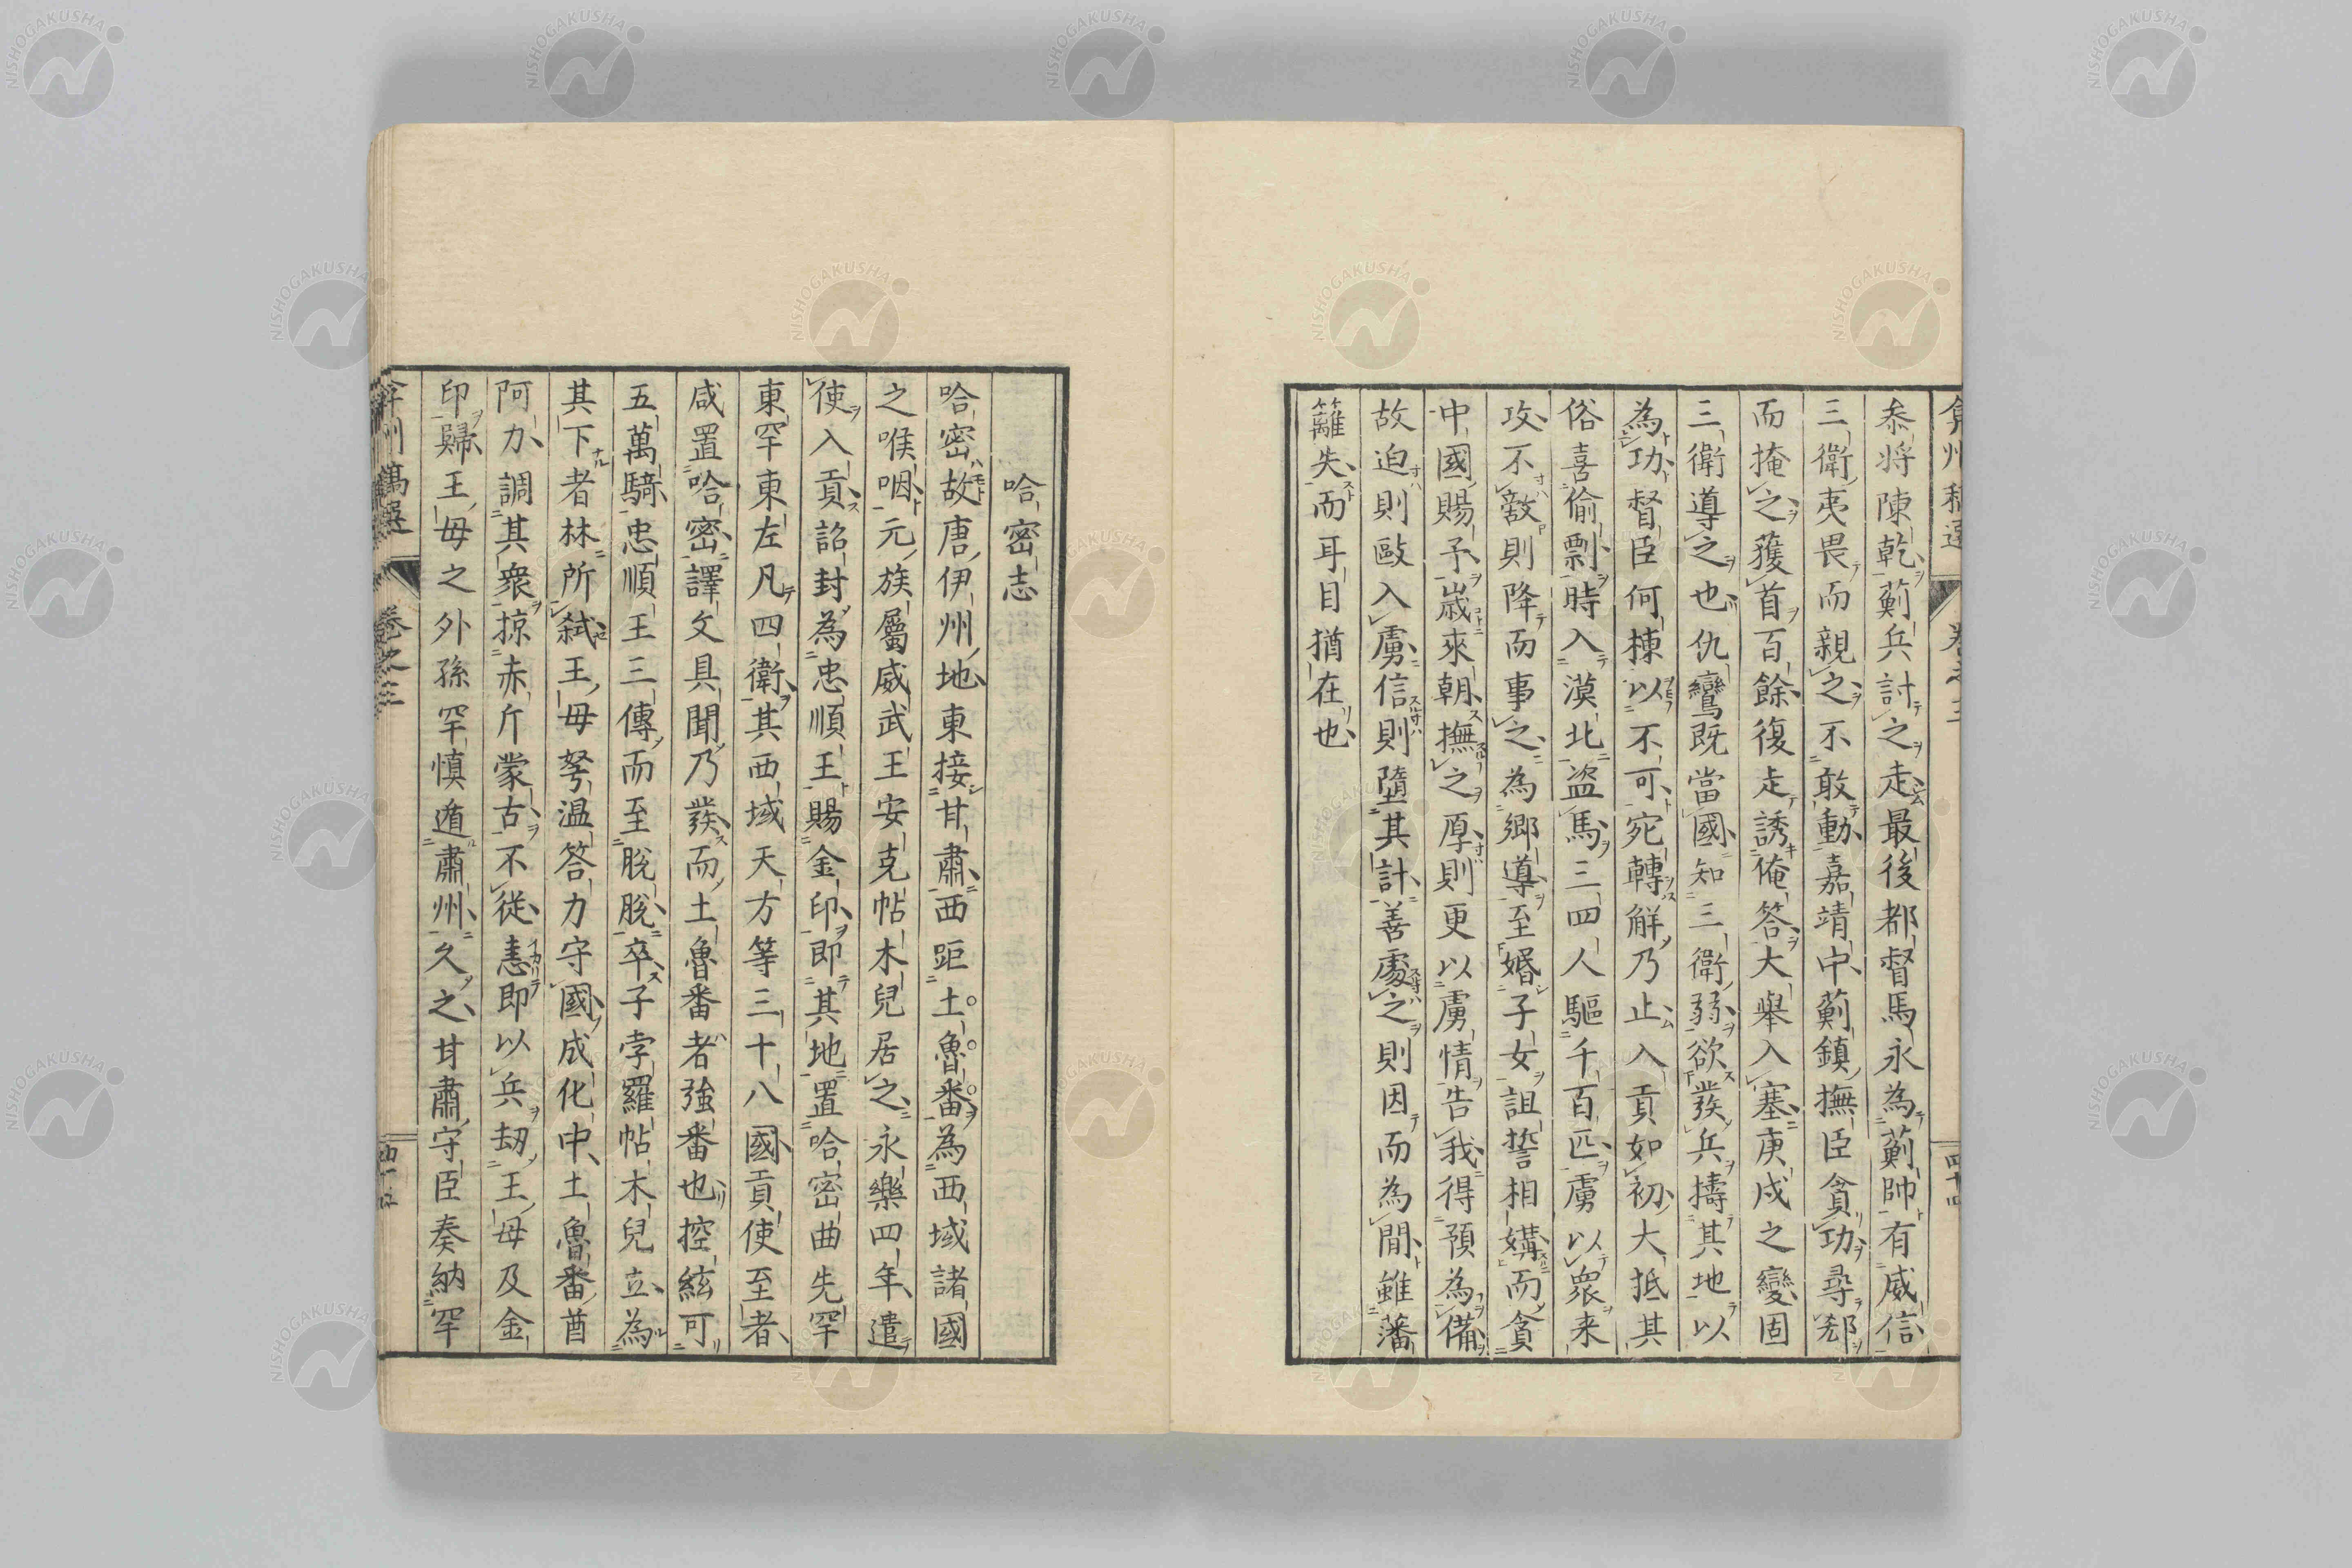 弇州稿選 卷之三 四十四
叅将陳乾薊兵討之走最後都督馬永為薊帥有威信
三衛夷畏而親之不敢動嘉靖中薊鎮撫臣貪功尋郄
而掩之獲首百餘復走誘俺答大舉入塞庚戌之變固
三衛導之也仇鸞既當國知三衛弱欲發兵擣其地以
為功督臣何棟以不可宛轉解乃止入貢如初大抵其
俗喜偷剽時入漠北盜馬三四人驅千百匹虜以衆来
攻不敵則降而事之為鄉導至婚子女詛誓相媾而貪
中國賜予歳來朝撫之厚則更以虜情告我得預為備
故迫則敺入虜信則墮其計善處之則因而為間雖藩
籬失而耳目猶在也
哈密志
哈密故唐伊州地東接甘肅西距土魯番為西域諸國
之喉咽元族屬威武王安克帖木兒居之永樂四年遣
使入貢詔封為忠順王賜金印即其地置哈密曲先罕
東罕東左凡四衛其西域天方等三十八國貢使至者
咸置哈密譯文具聞乃發而土魯番者強番也控絃可
五萬騎忠順王三傳而至脫脫卒子孛羅帖木兒立為
其下者林所弑王母弩温答力守國成化中土魯番酋
阿力調其衆掠赤斤蒙古不從恚即以兵劫王母及金
印歸王母之外孫罕慎遁肅州久之甘肅守臣奏納罕
弇州稿選 卷之三 四十五
NISHOGAKUSHA